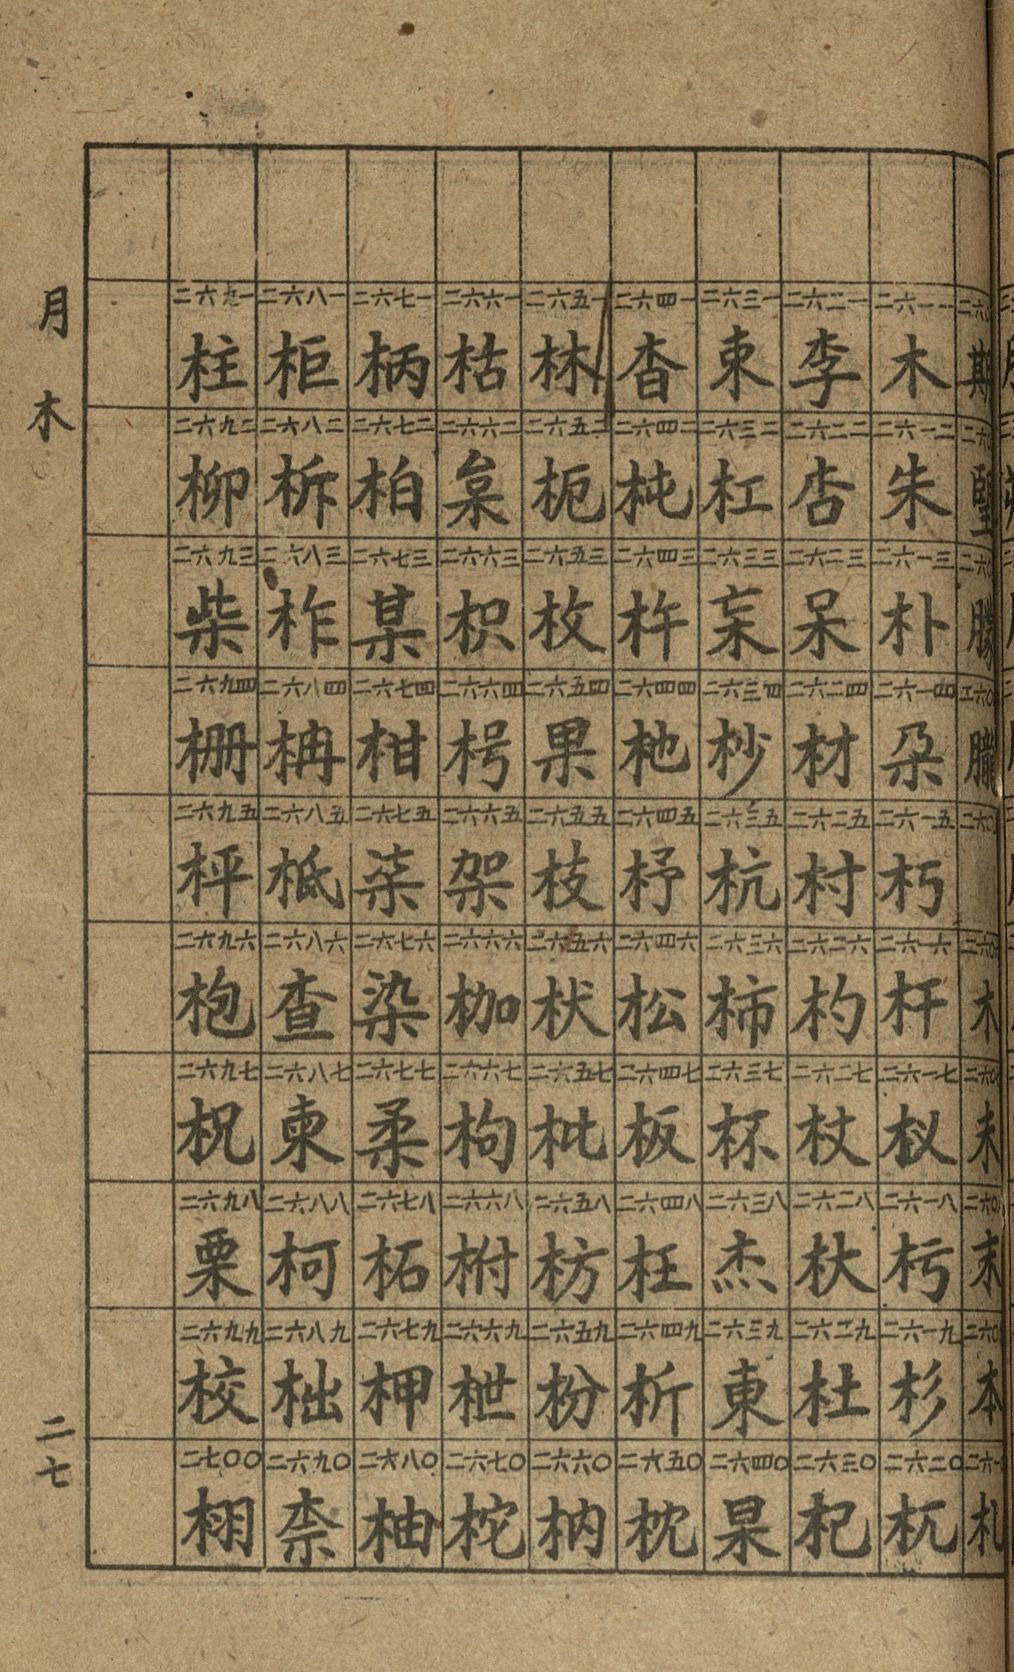 期
朢
朦
朧
木
未
末
本
札
二六一一 木
二六一二 朱
二六一三 朴
二六一四 朵
二六一五 朽
二六一六 杆
二六一七 杈
二六一八 杇
二六一九 杉
二六二〇 杌
二六二一 李
二六二二 杏
二六二三 呆
二六二四 材
二六二五 村
二六二六 杓
二六二七 杖
二六二八 杕
二六二九 杜
二六三〇 杞
二六三一 束
二六三二 杠
二六三三 杗
二六三四 杪
二六三五 杭
二六三六 柿
二六三七 杯
二六三八 杰
二六三九 東
二六四〇 杲
二六四一 杳
二六四二 杶
二六四三 杵
二六四四 杝
二六四五 杼
二六四六 松
二六四七 板
二六四八 枉
二六四九 析
二六五〇 枕
二六五一 林
二六五二 枙
二六五三 枚
二六五四 果
二六五五 枝
二六五六 枤
二六五七 枇
二六五八 枋
二六五九 枌
二六六〇 枘
二六六一 枯
二六六二 枲
二六六三 枳
二六六四 枵
二六六五 架
二六六六 枷
二六六七 枸
二六六八 柎
二六六九 枻
二六七〇 柁
二六七一 柄
二六七二 柏
二六七三 某
二六七四 柑
二六七五 柒
二六七六 染
二六七七 柔
二六七八 柘
二六七九 柙
二六八〇 柚
二六八一 柜
二六八二 柝
二六八三 柞
二六八四 柟
二六八五 柢
二六八六 查
二六八七 柬
二六八八 柯
二六八九 柮
二六九〇 柰
二六九一 柱
二六九二 柳
二六九三 柴
二六九四 柵
二六九五 枰
二六九六 枹
二六九七 柷
二六九八 栗
二六九九 校
二七〇〇 栩
月 木
二七